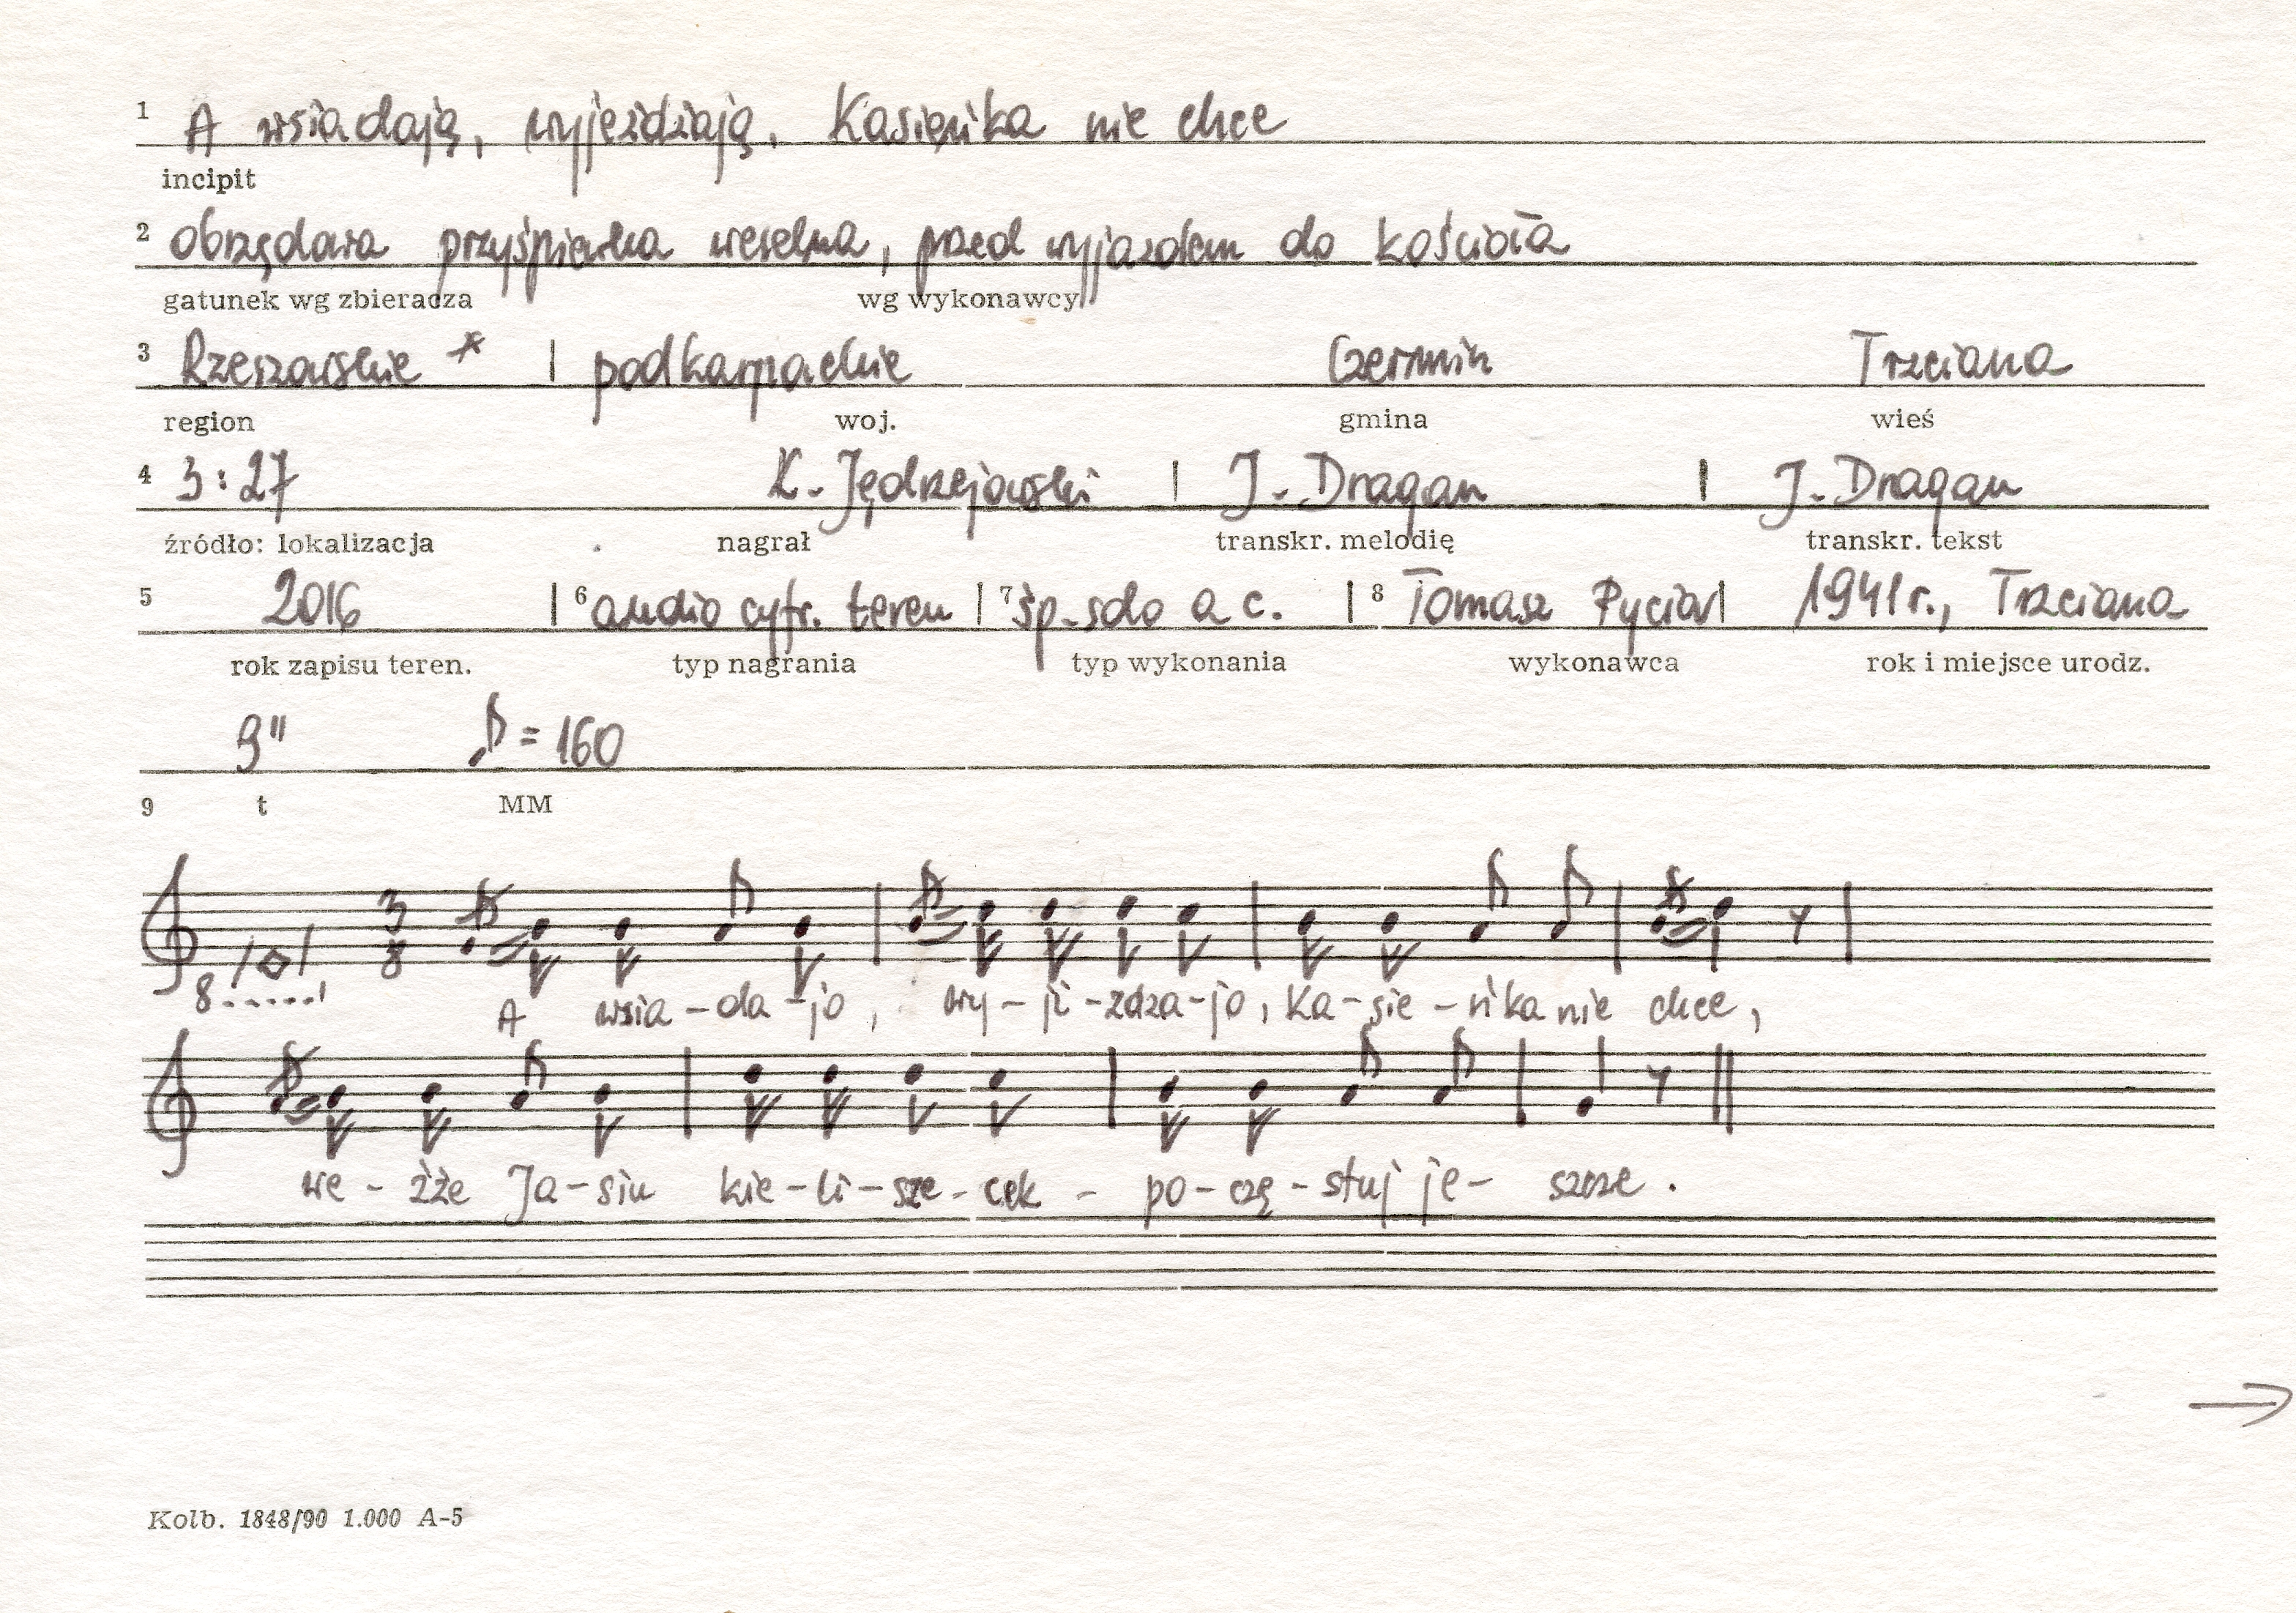 1 A wsiadają, wyjeżdżają, Kasieńka nie chce
incipit
2 obrzędowa przyśpiewka weselna, przed wyjazdem do kościoła
gatunek wg zbieracza wg wykonawcy
3 Rzeszowskie * | podkarpackie Czermin Trzciana
region woj. gmina wieś
4 3:27 K. Jędrzejowski | J. Dragan | J. Dragan
źródło: lokalizacja nagrał transkr. melodię transkr. tekst
5 2016 | 6 audio cyfr. teren | 7 śp. solo a c. | 8 Tomasz Pycior | 1941 r., Trzciana
rok zapisu teren. typ nagrania typ wykonania wykonawca rok i miejsce urodz.
9" ♪ = 160
9 t MM
3
8
8......
A wsia-da-jo, wy-ji-zdza-jo, Ka-sie-ńka nie chce,
we-źże Ja-siu kie-li-sze-cek - po-czę-stuj je- szcze.
→
Kolb. 1848/90 1.000 A-5